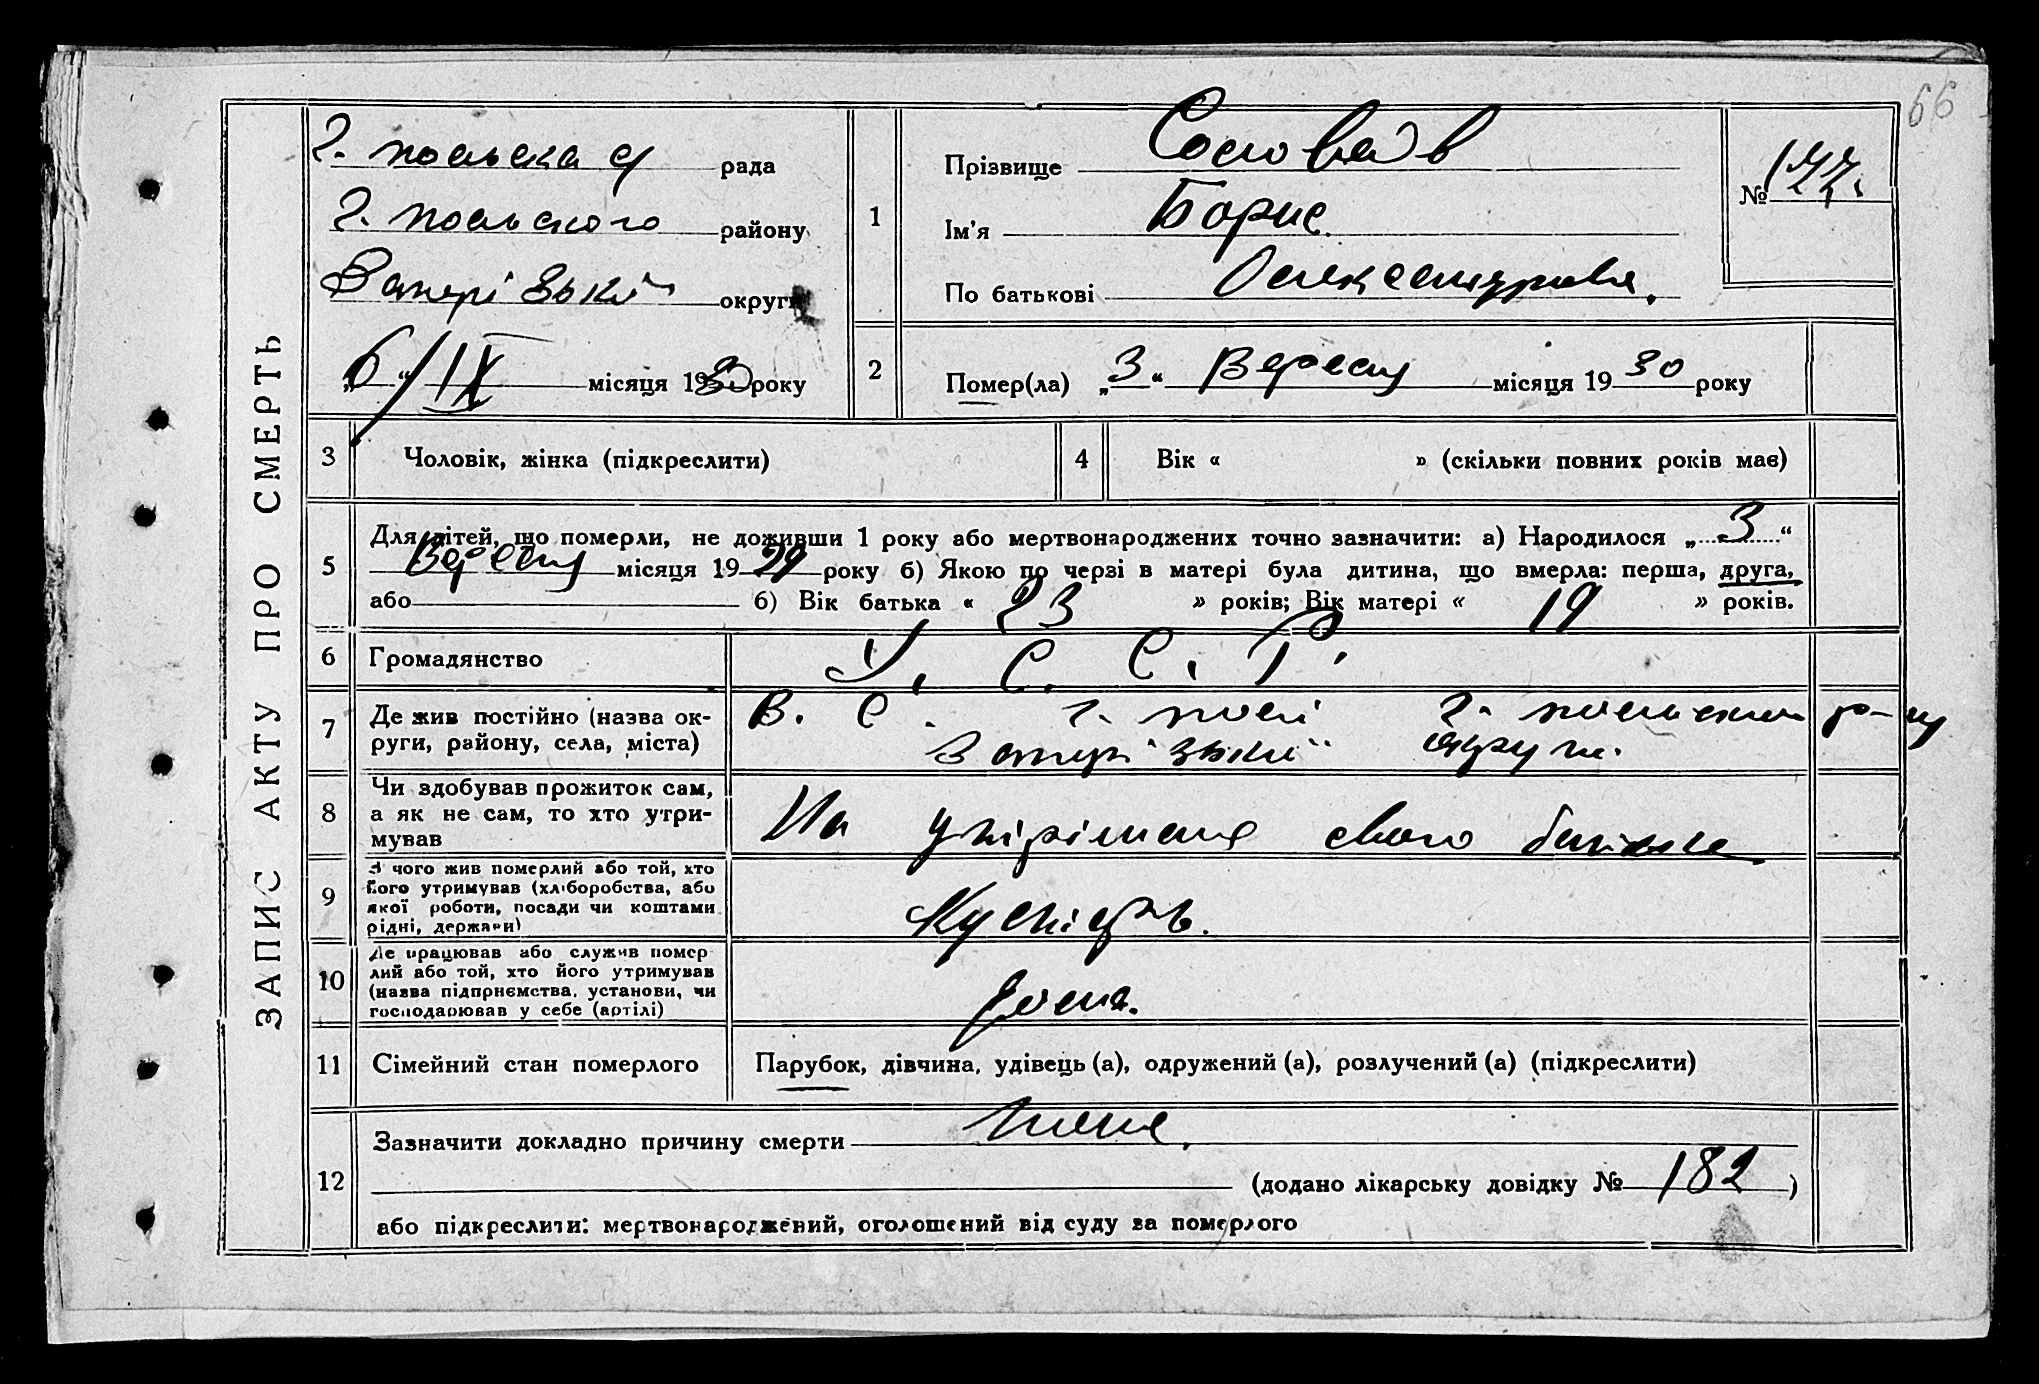 66
ЗАПИС АКТУ ПРО СМЕРТЬ
Г. польська рада
Г. польского району
Запорізької округи
„6“ IX місяця 1930 року
1
Прізвище
Ім'я Борис
По батькові
№ 177.
2
Помер(ла) „3“ Вересня місяця 1930 року
3
Чоловік, жінка (підкреслити)
4
Вік « » (скільки повних років має)
5
Для дітей, що померли, не доживши 1 року або мертвонароджених точно зазначити: а) Народилося „3“
Вересня місяця 1929 року б) Якою по черзі в матері була дитина, що вмерла: перша, друга,
або б) Вік батька « 23 » років; Вік матері « 19 » років.
6
Громадянство
У. С. С. Р.
7
Де жив постійно (назва ок-
руги, району, села, міста)
В. С. Г. полі Г. польского р-ну
Запорізької округи.
8
Чи здобував прожиток сам,
а як не сам, то хто утри-
мував
На утрімане свого батька
9
З чого жив померлий або той, хто
його утримував (хліборобства, або
якої роботи, посади чи коштами
рідні, держави)
10
Де працював або служив помер
лий або той, хто його утримував
(назва підприємства, установи, чи
господарював у себе (артілі)
11
Сімейний стан померлого
Парубок, дівчина, удівець (а), одружений (а), розлучений (а) (підкреслити)
12
Зазначити докладно причину смерти
(додано лікарську довідку № 182)
або підкреслити: мертвонароджений, оголошений від суду за померлого